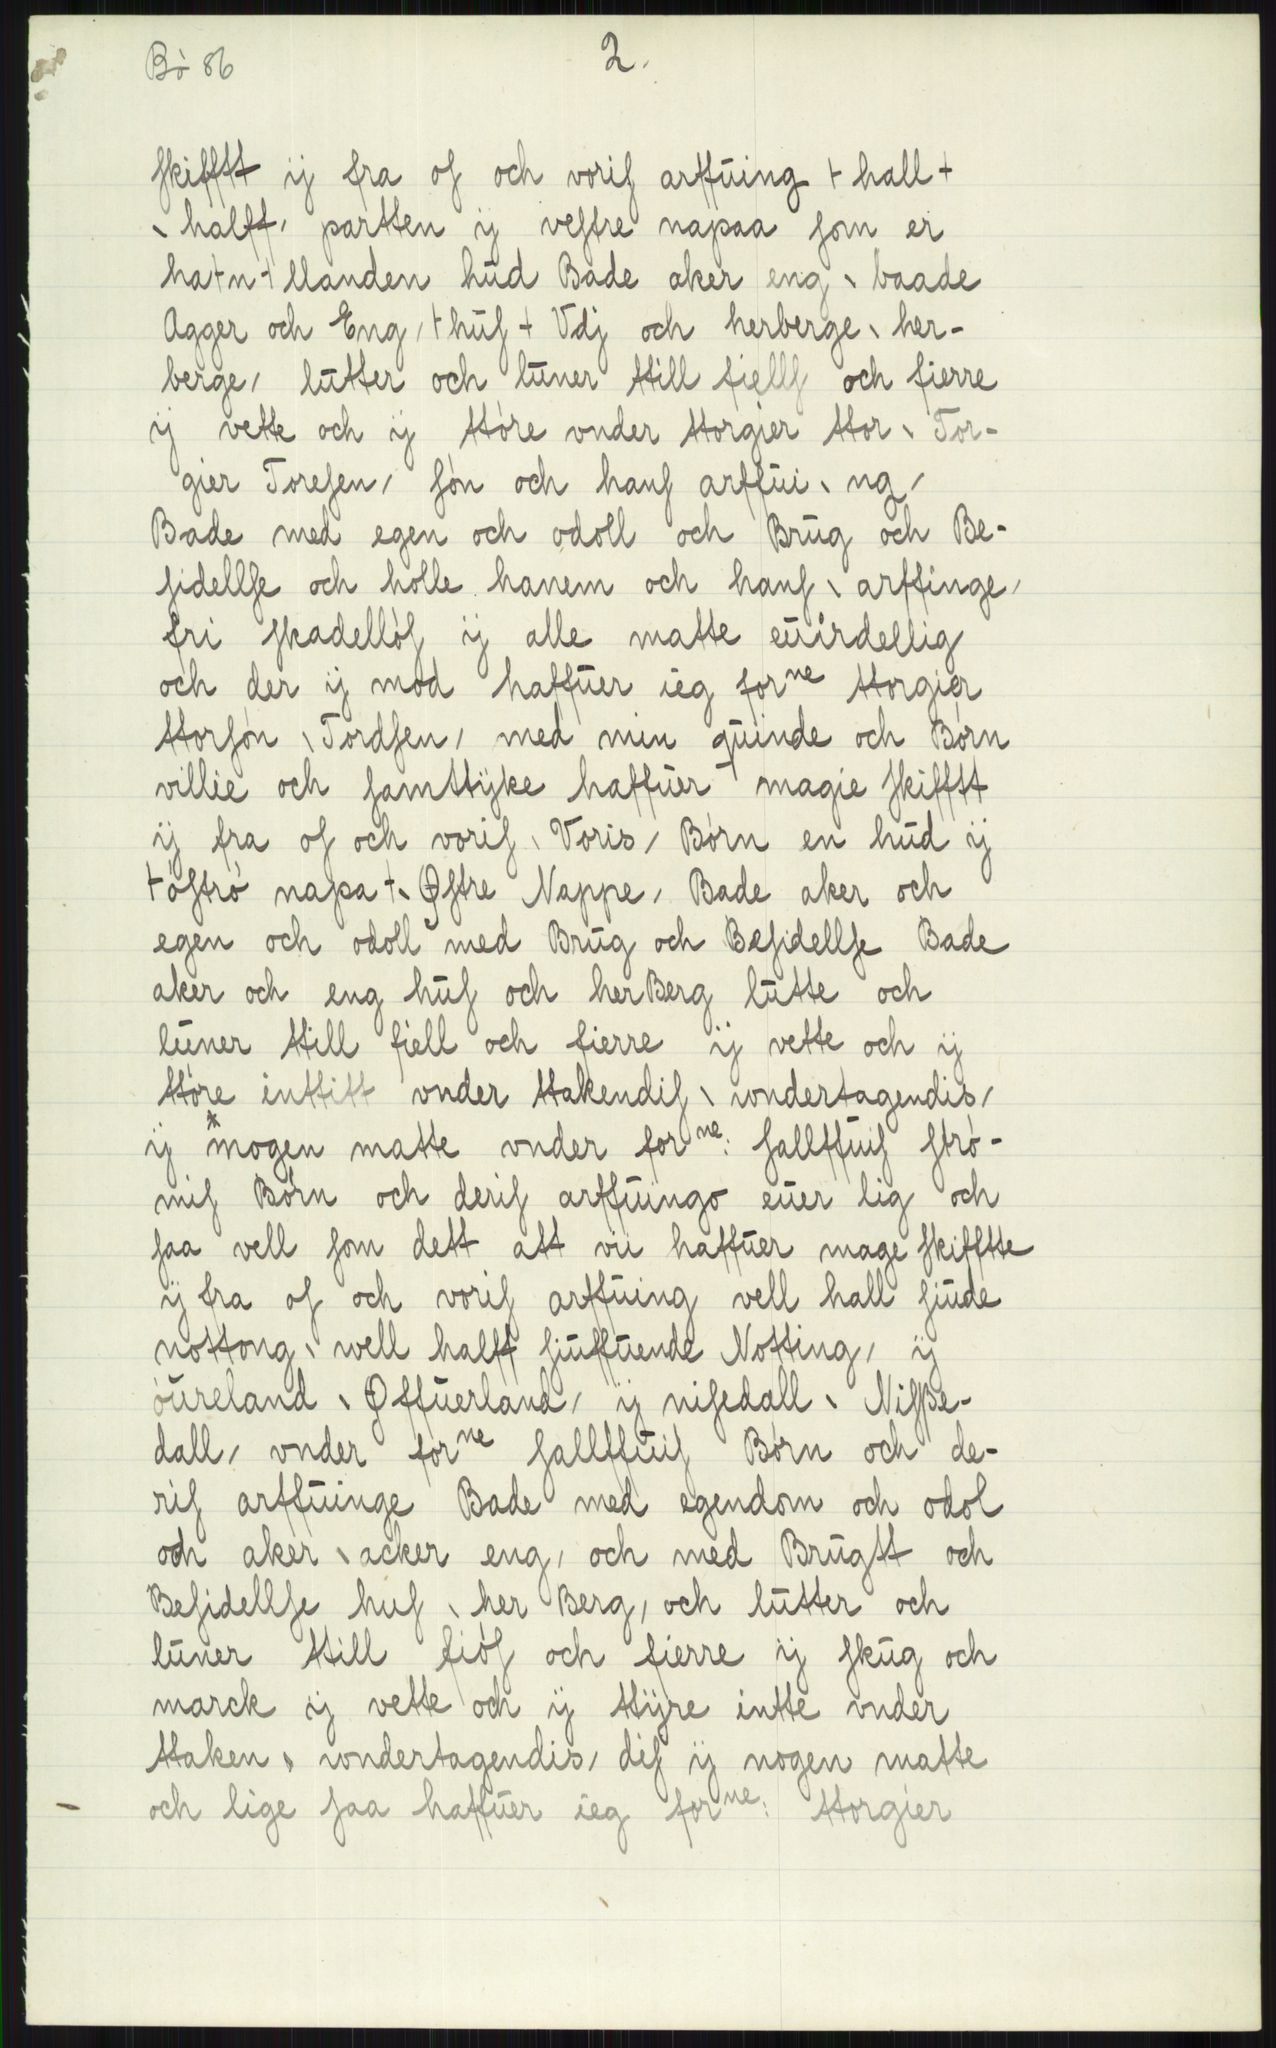 Bø 86
2.
skifftt ij fra os och voris arffuing + hall +
\ halff / partten ij vestre napaa som er
ha+n+llanden hud Bade aker eng \ baade
Agger och Eng / + hus + Vdj och herberge \ her-
berge / lutter och luner ttill fiells och fierre
ij vette och ij ttøre vnder ttorgier ttor \ Tor-
gier Toresen / søn och hans arffui \ ng /
Bade med egen och odoll och Brug och Be-
sidellse och holle hanem och hans \ arffinge /
fri skadelløs ij alle matte euirdellig
och der ij mod haffuer ieg forne ttorgier
ttorsøn \ Tordsen / med min quinde och Børn
villie och samttijke haffuer magie skifftt
ij fra os och voris \ Voris / Børn en hud ij
+ østrø napa + \ Østre Nappe / Bade aker och
egen och odoll med Brug och Besidellse Bade
aker och eng hus och herBerg lutte och
luner ttill fiell och fierre ij vette och ij
ttøre inttitt vnder ttakendis \ wndertagendis /
ij *mogen matte vnder forne: sallffuis strø-
mis Børn och deris arffuingo euer lig och
saa vell som dett att vii haffuer mage skifftte
ij fra os och voris arffuing vell hall siude
nottong \ well halff siuffuende Notting / ij
øureland \ Øffuerland / ij nisedall \ Nisße-
dall / vnder forne sallffuis Børn och de-
ris arffuinge Bade med egendom och odol
och aker \ acker eng / och med Brugtt och
Besidellse hus \ her Berg / och lutter och
luner ttill fiøs och fierre ij skug och
marck ij vette och ij ttijre intte vnder
ttaken \ wndertagendis / dis ij nogen matte
och lige saa haffuer ieg forne: ttorgier